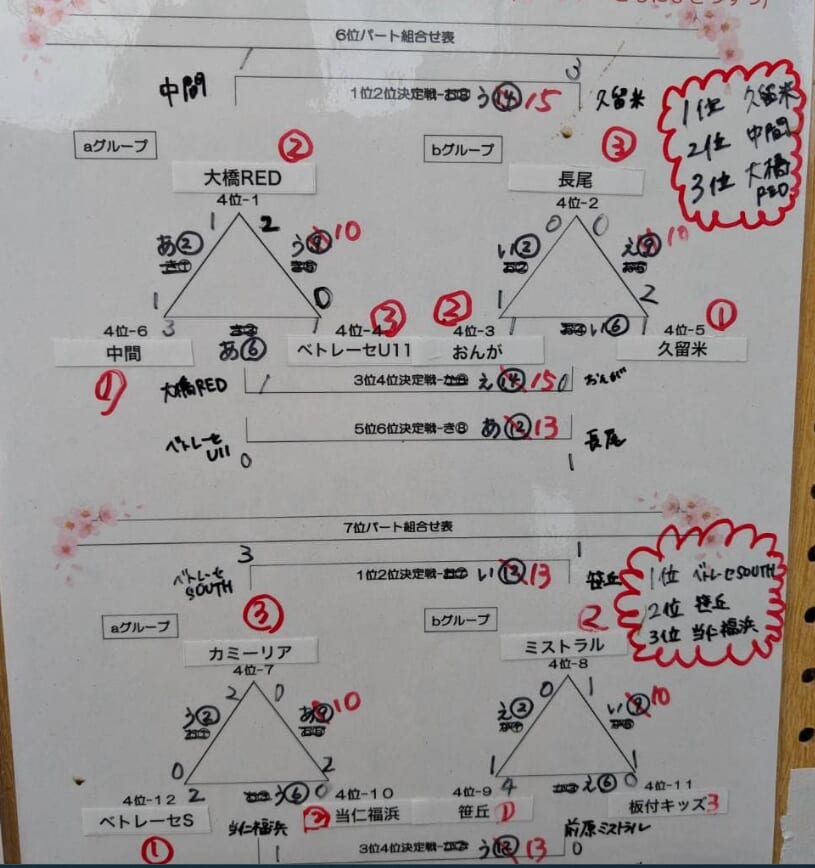 6位パート組合せ表
1 3
中間 1位2位決定戦-お⑧ う⑭ 15 久留米
1位 久留米
2位 中間
3位 大橋RED
aグループ ② bグループ ③
大橋RED 長尾
4位-1 4位-2
1 2 0 0
あ② う⑨ 10 い② え⑨ 10
1 0 1 2
4位-6 3 1 4位-4 ③ ② 4位-3 1 い⑥ 1 4位-5 ①
中間 あ⑥ ベトレーセU11 おんが 久留米
①
大橋RED 1 3位4位決定戦 え⑭ 15 0 おんが
ベトレーセU11 5位6位決定戦-き⑧ あ⑫ 13 長尾
0 1
7位パート組合せ表
3 1
ベトレーセSOUTH 1位2位決定戦 い⑫ 13 笹丘
1位 ベトレーセSOUTH
2位 笹丘
3位 当仁福浜
aグループ ③ bグループ 2
カミーリア ミストラル
4位-7 4位-8
2 0 0 1
う② あ⑨ 10 え② い⑨ 10
0 2 1 1
4位-12 2 う⑥ 0 4位-10 4位-9 4 え⑥ 0 4位-11
ベトレーセS ② 当仁福浜 笹丘 1 板付キッズ 3
① 当仁福浜 1 3位4位決定戦 う⑫ 13 0 前原ミストラル